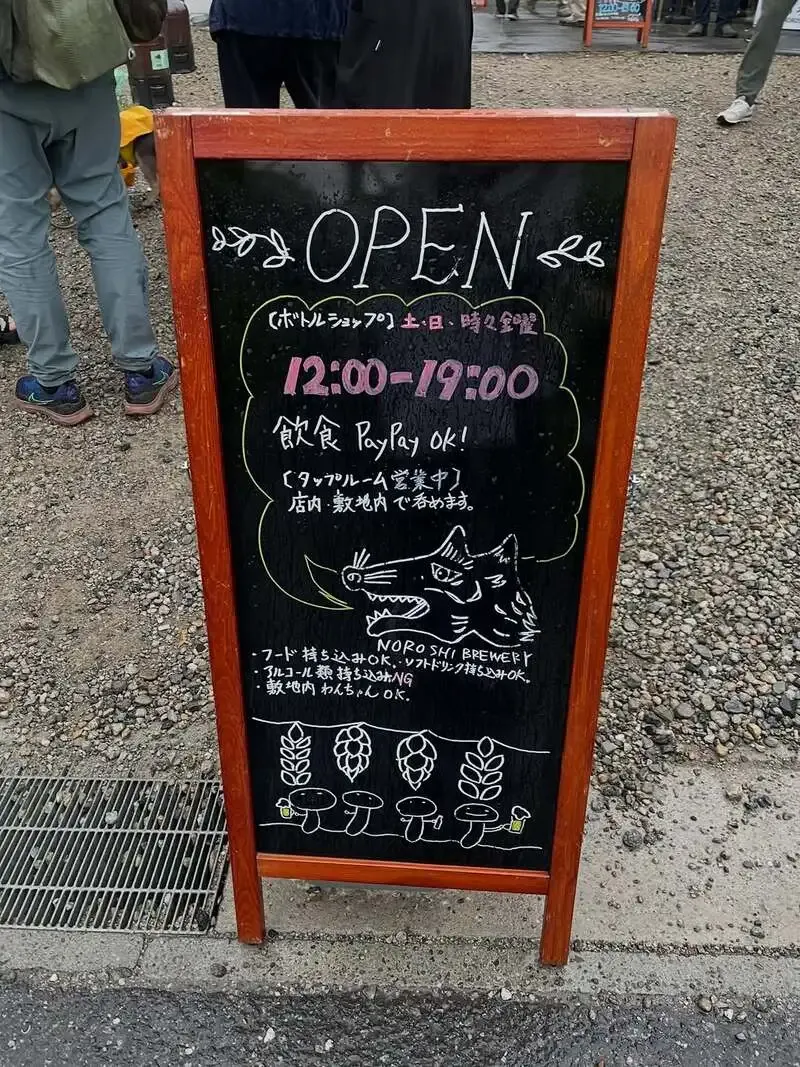 OPEN
【ボトルショップ】土・日・時々金曜
12:00-19:00
飲食 PayPay OK!
【タップルーム営業中】
店内・敷地内で呑めます。
NOROSHI BREWERY
・フード持ち込みOK.・ソフトドリンク持ち込みOK.
・アルコール類持ち込みNG
・敷地内わんちゃんOK.